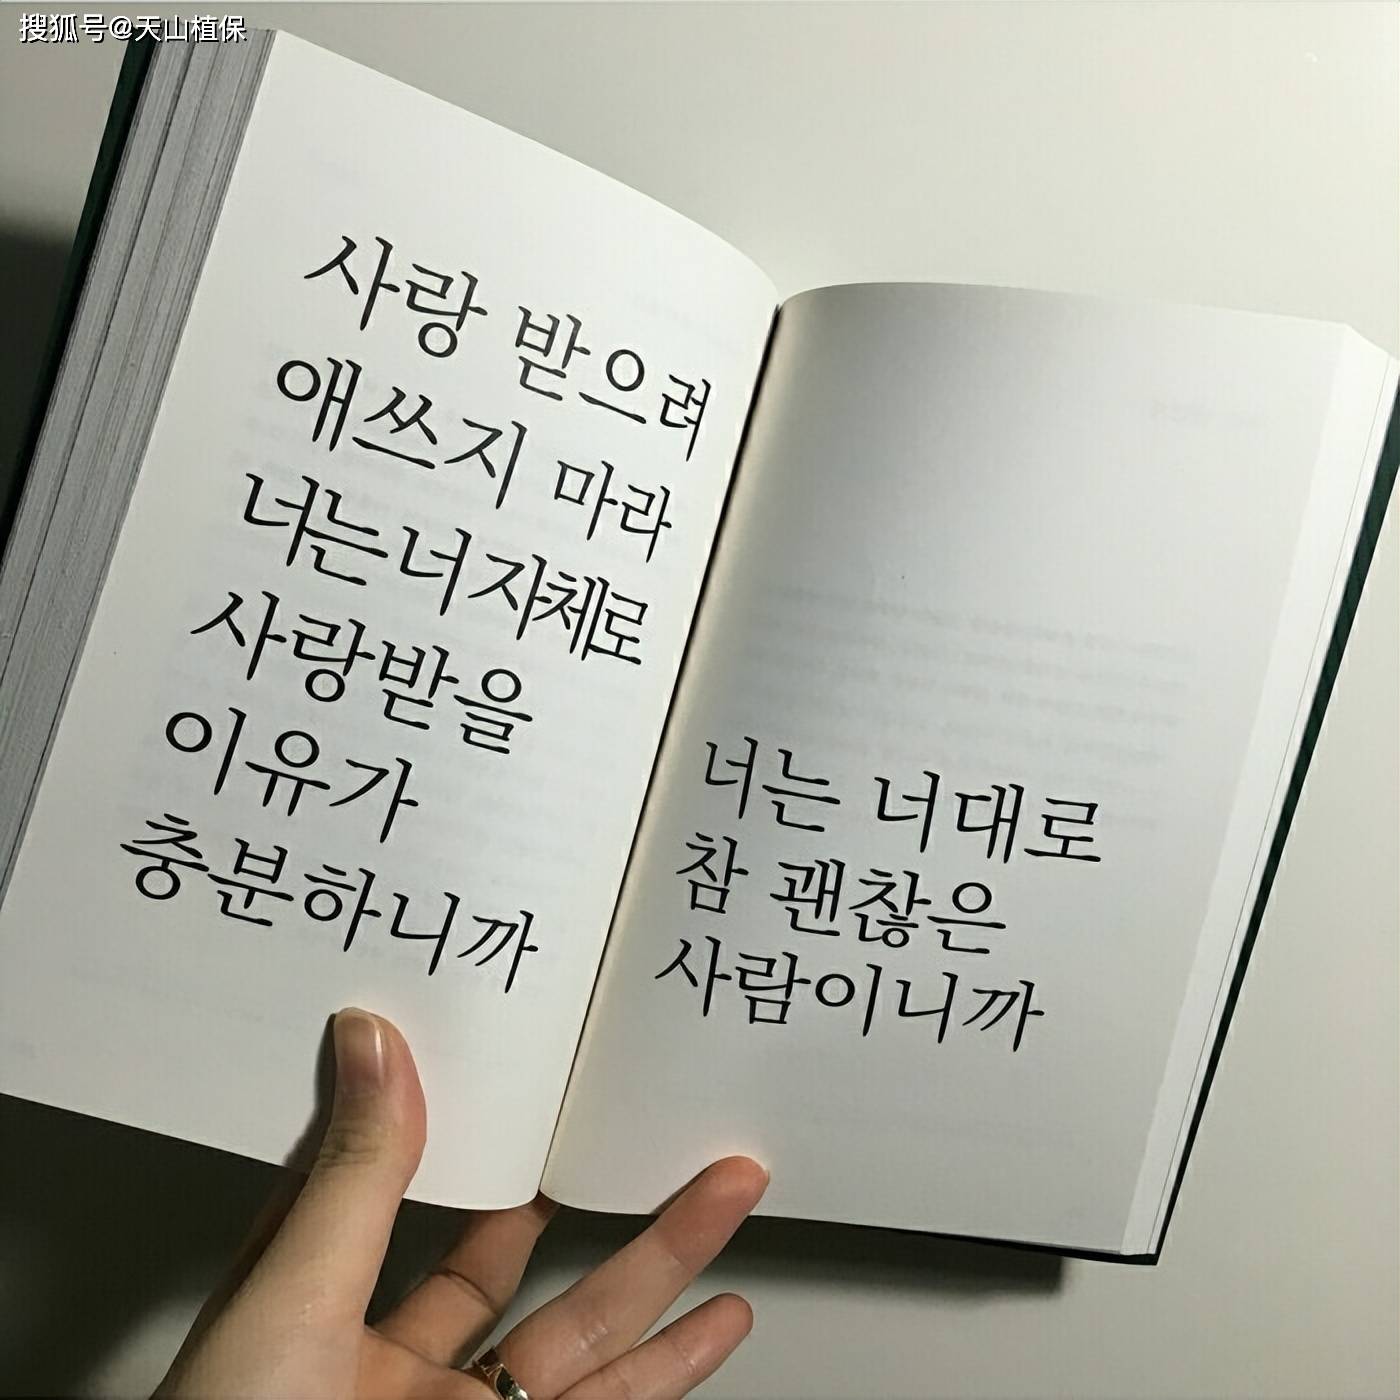 搜狐号@天山植保
사랑 받으려
애쓰지 마라
너는 너 자체로
사랑받을
이유가
충분하니까
너는 너대로
참 괜찮은
사람이니까